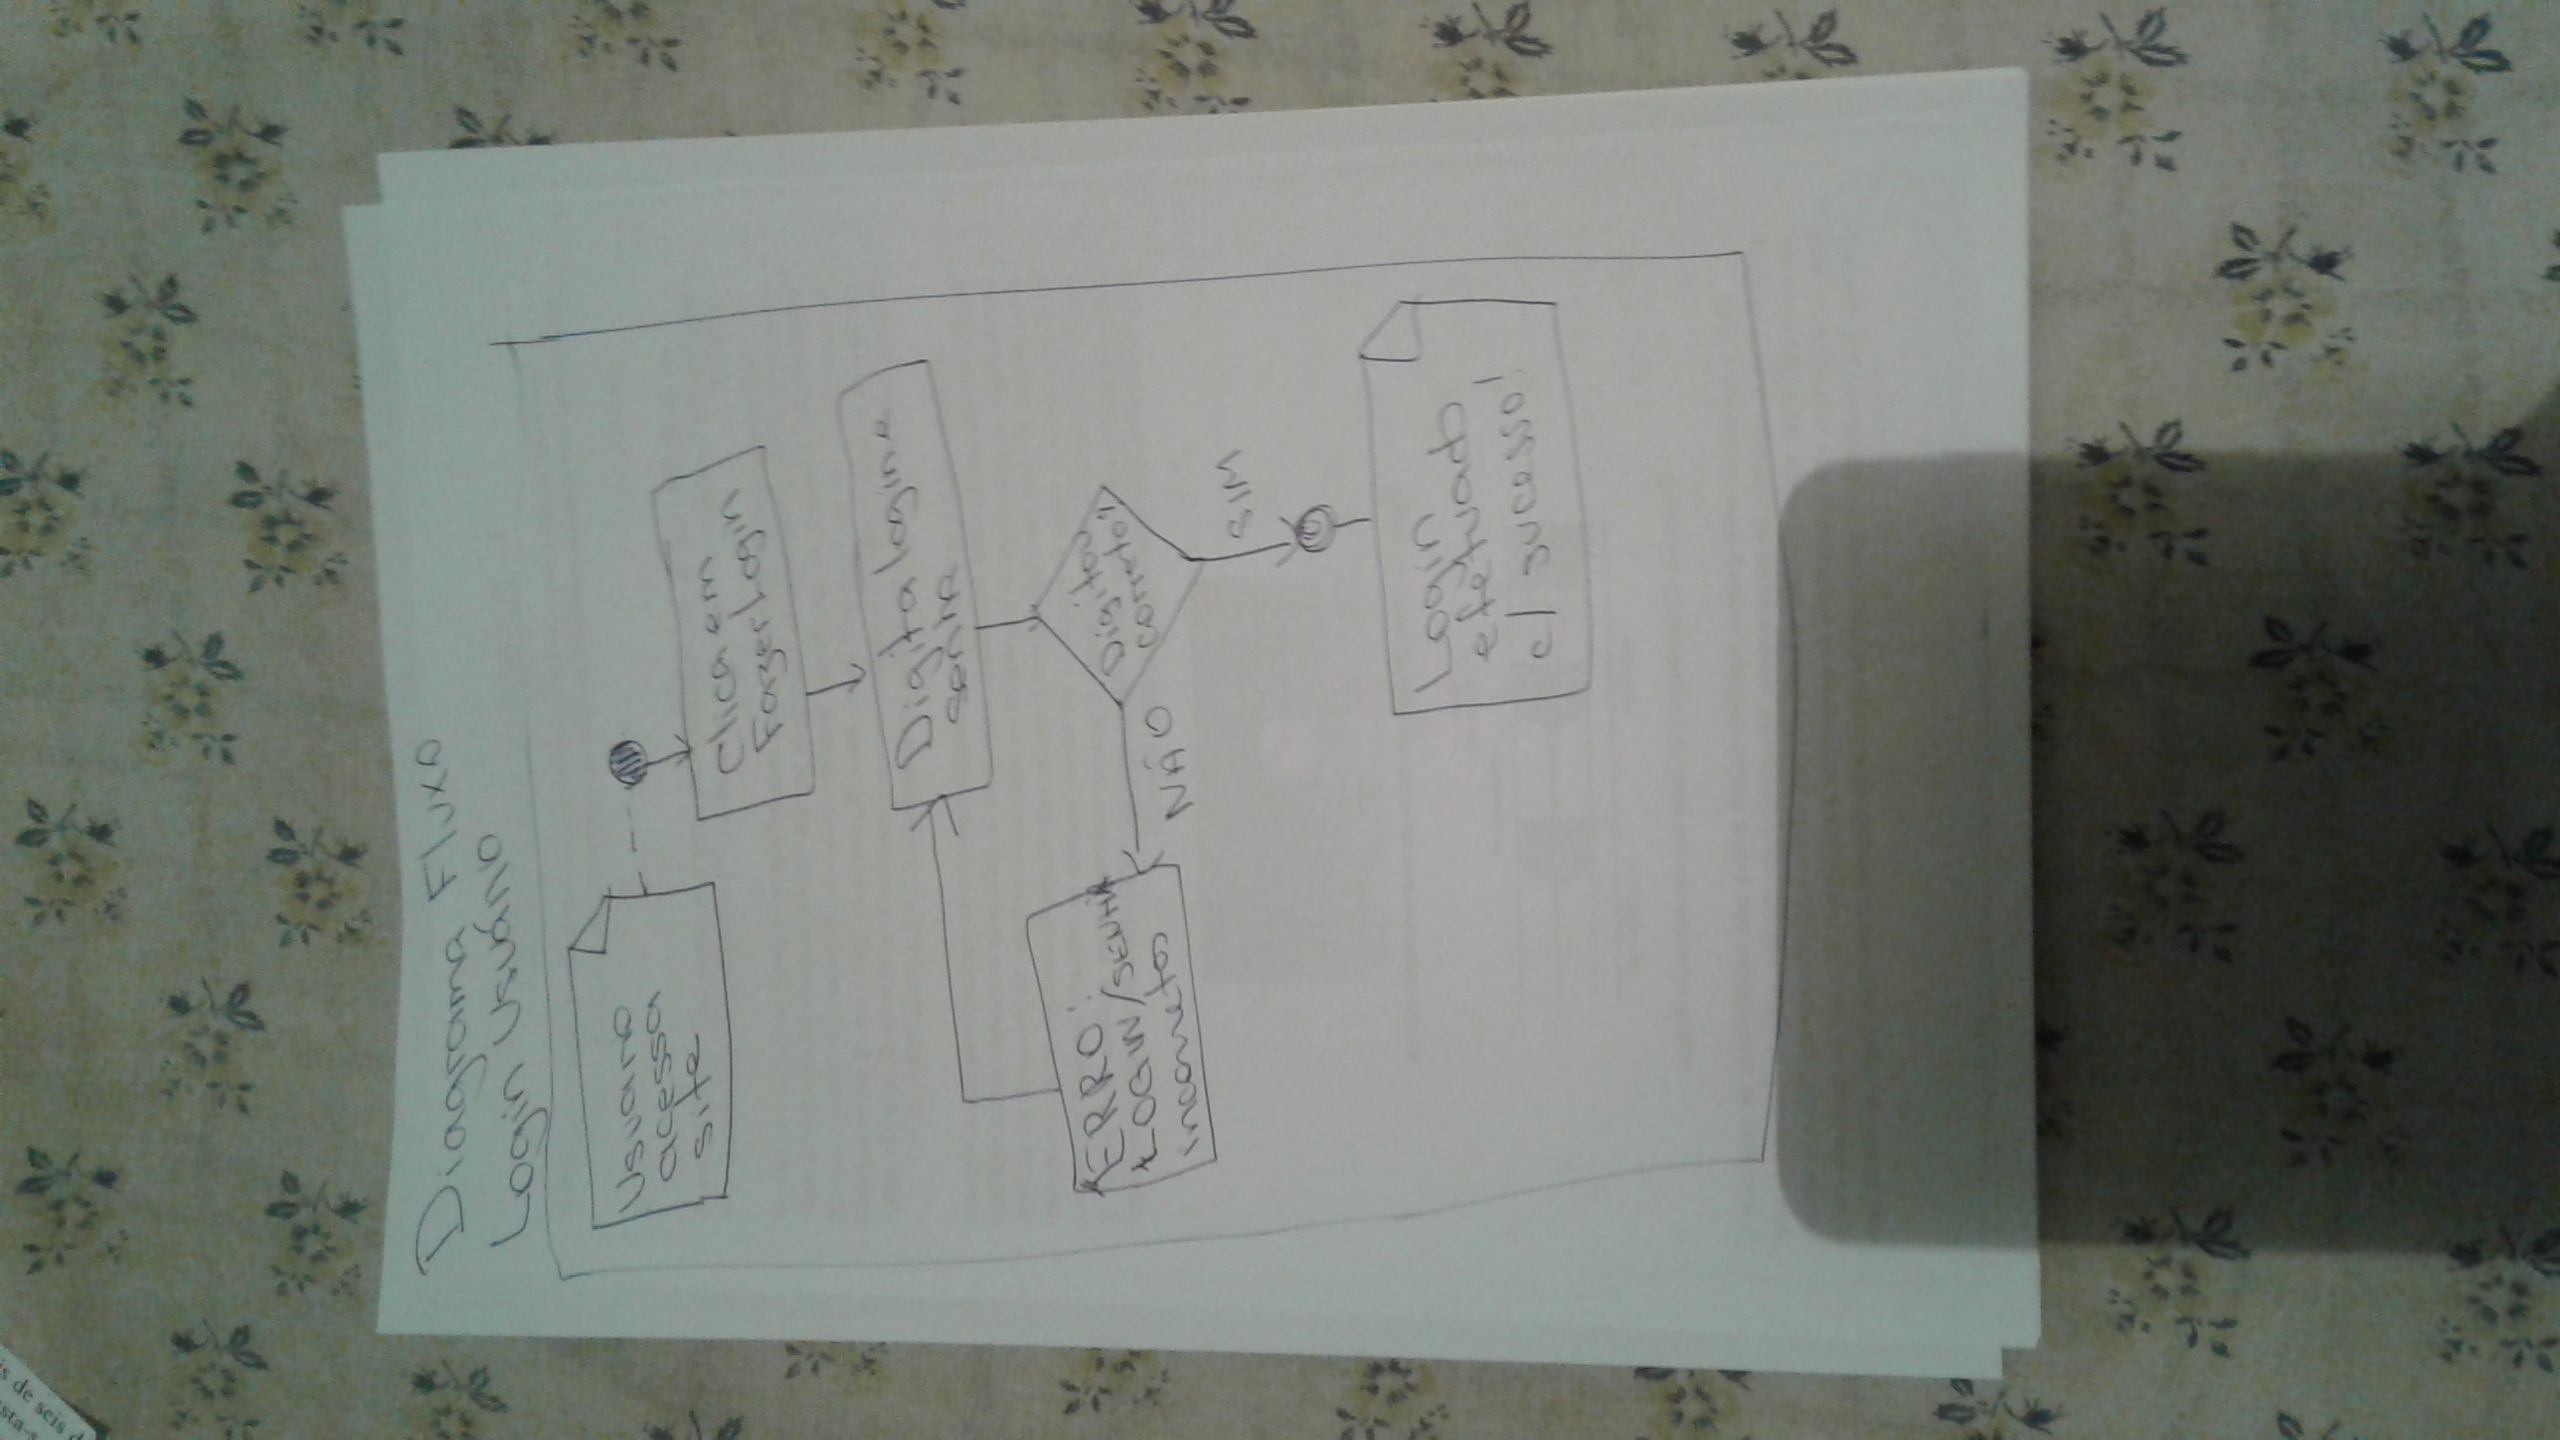 is de seis d
Diagrama Fluxo
Login Usuário
Usuario
acessa
site
Clica em
Fazer Login
Digita login e
senha
Digitou
correto?
NÃO
ERRO:
LOGIN/SENHA
incorretos
SIM
Login
efetuado
c/ sucesso!